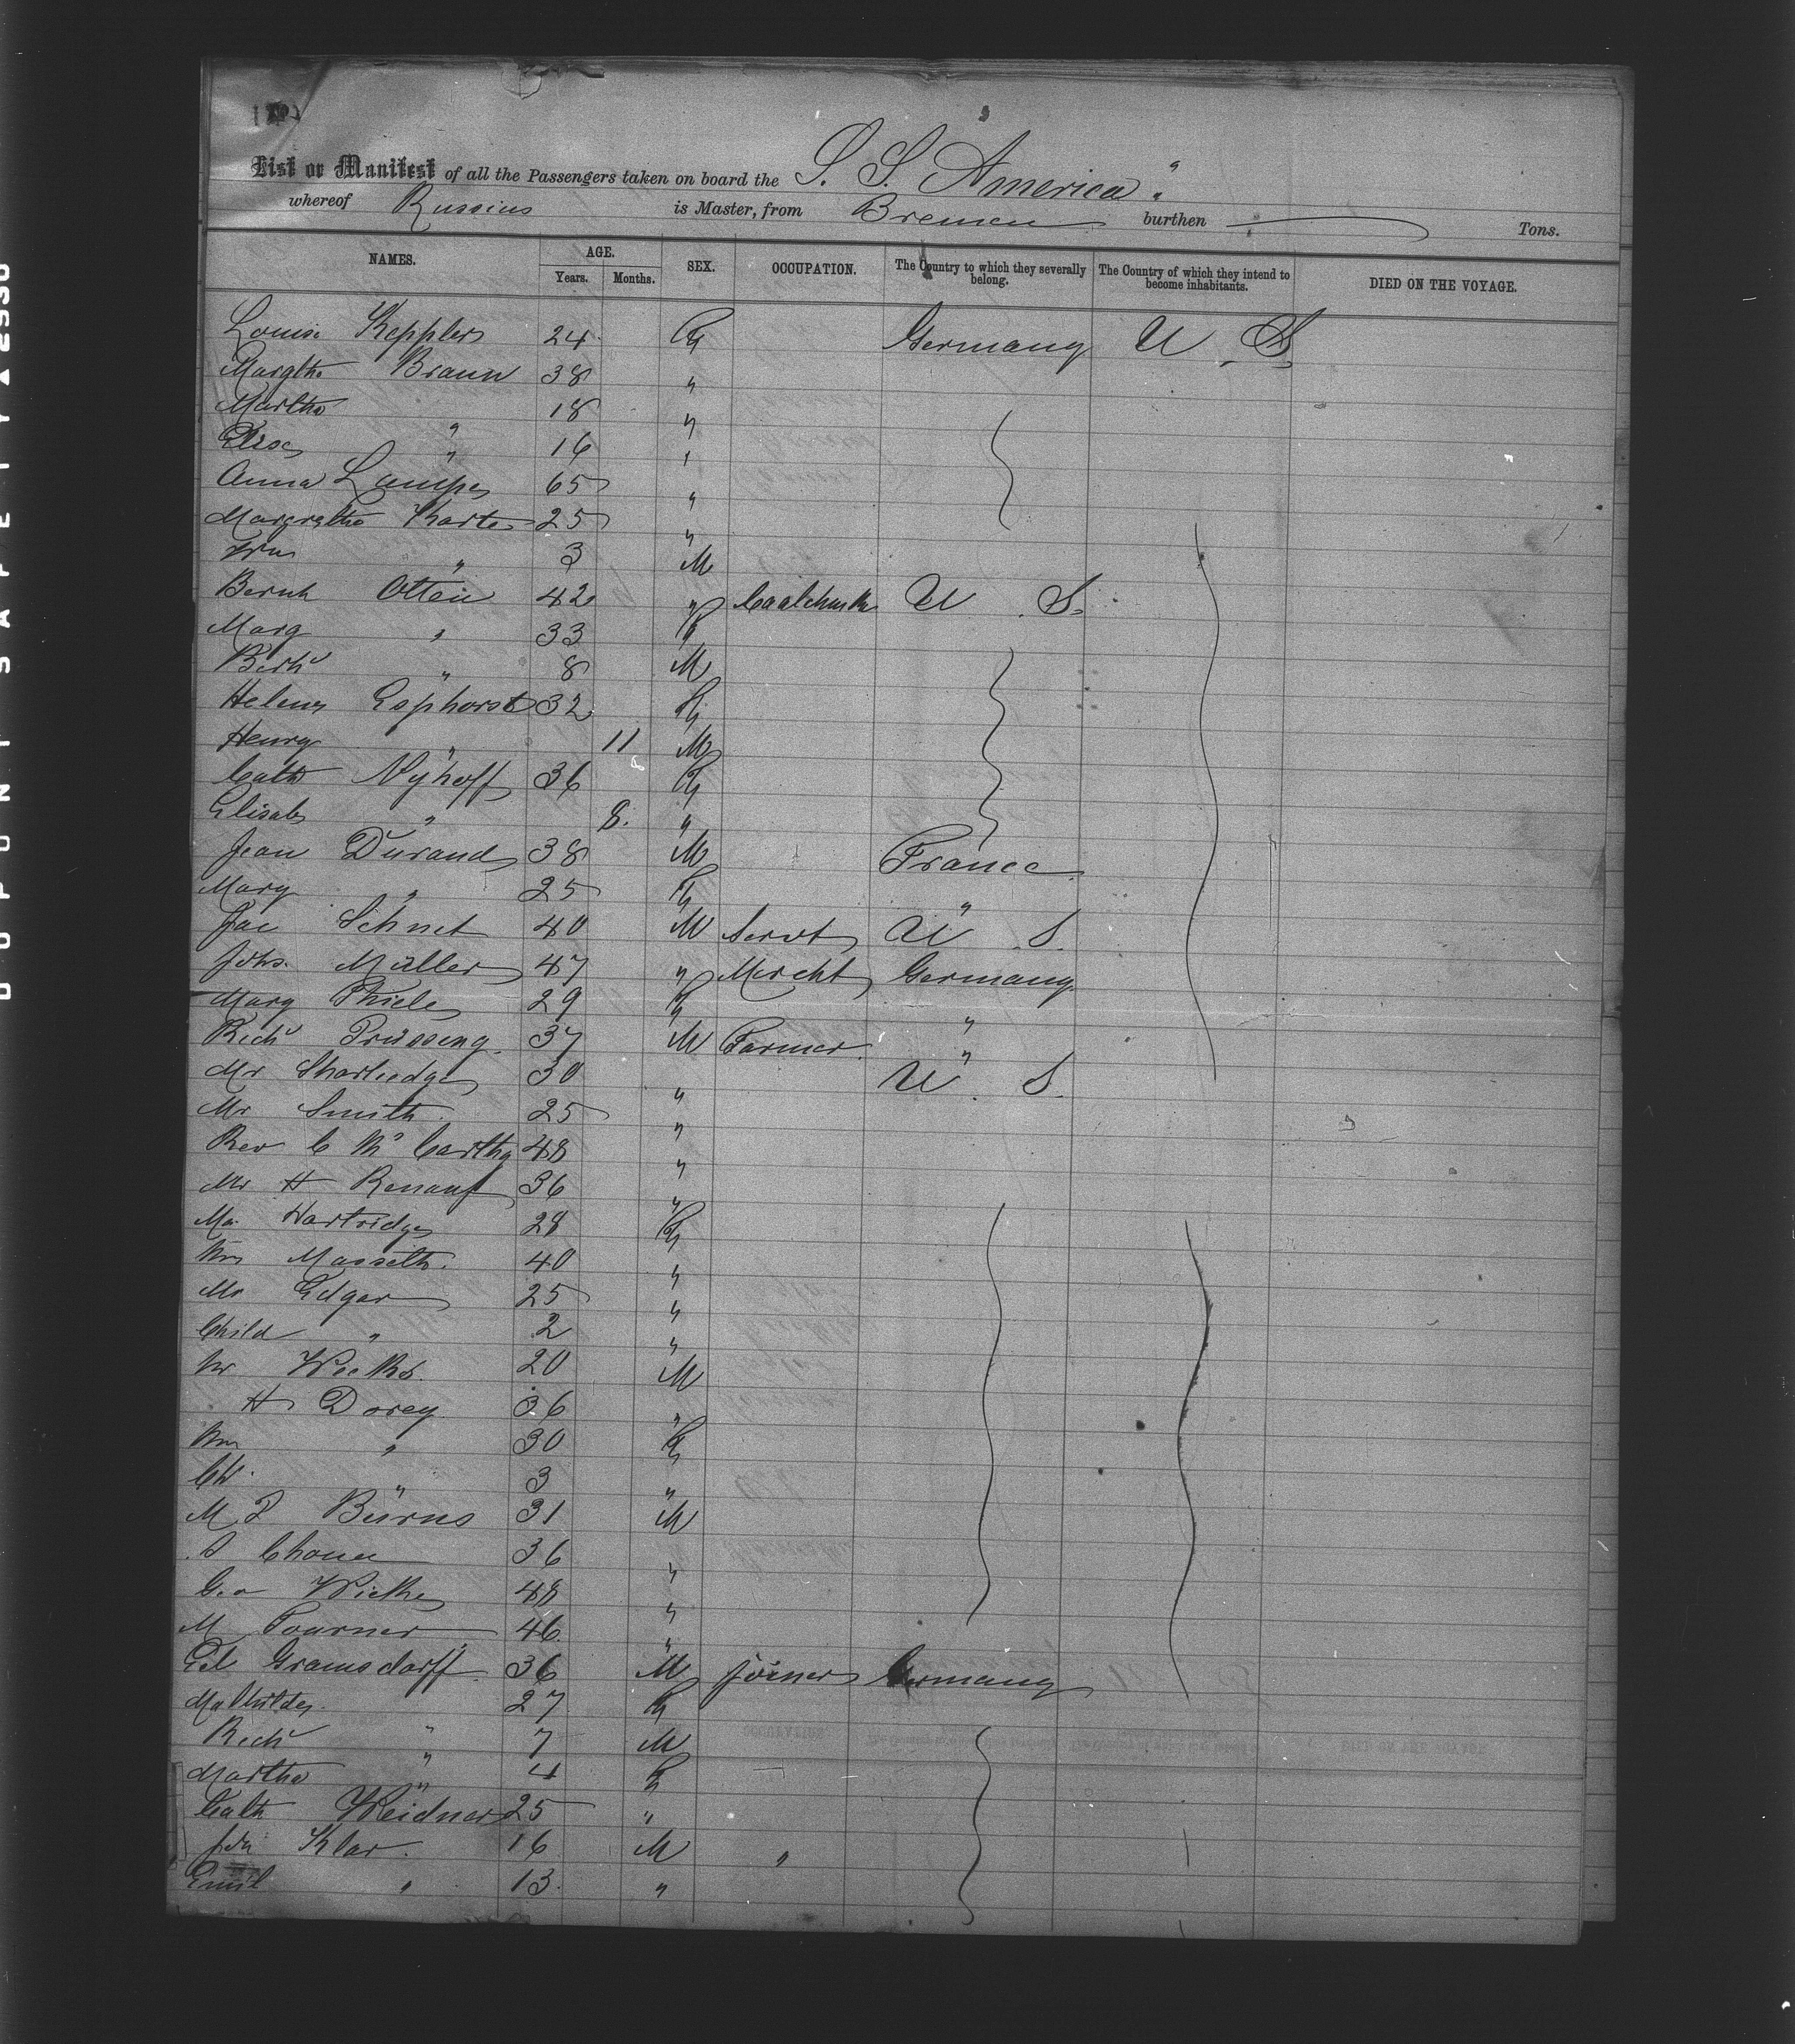 List or Manifest of all the Passengers taken on board the S. S. America"
whereof Russius is Master, from Bremen burthen Tons.
NAMES. AGE. SEX. OCCUPATION. The Country to which they severally belong. The Country of which they intend to become inhabitants. DIED ON THE VOYAGE.
Years. Months.
Louise Keppler 24 Germany U S
Margthe Braun 38 "
Martha " 18 "
Elise " 16 "
Anna Lampe 65 "
Margretha Karte 25 "
Wm " 3 M
Bernh Otten 42 " U S.
Marg " 33
" 8 M
Helene Esphorst 32
Henry " 11 M
Cath Nyhoff 36
Elisab " 8. "
Jean Durand 38 M France
Mary " 25 "
Jac Schnet 40 M Servt U S.
Johs. Müller 47 " Mercht Germany
Mary Thiele 29 "
Rich Prüssing 37 M Farmer "
Mr 30 " U S.
Mr Smith 25 "
Rev C Mc Carthy 48 "
Mr H Renauf 36 "
Hartridge 28
Mrs 40 "
Edgar 25 "
Child " 2 "
Mr Weeks 20 M
H Dorey 36 "
Mrs " 30
Ch. " 3 "
M P Burns 31 M
S 36 "
Geo 48 "
M Tourner 46. "
Ed Gramsdorff 36 M Joiner Germany
Mathilde " 27
Rich " 7 M
Martha " 4
Cath Weidner 25 "
Klar. 16 M "
Emil " 13. "